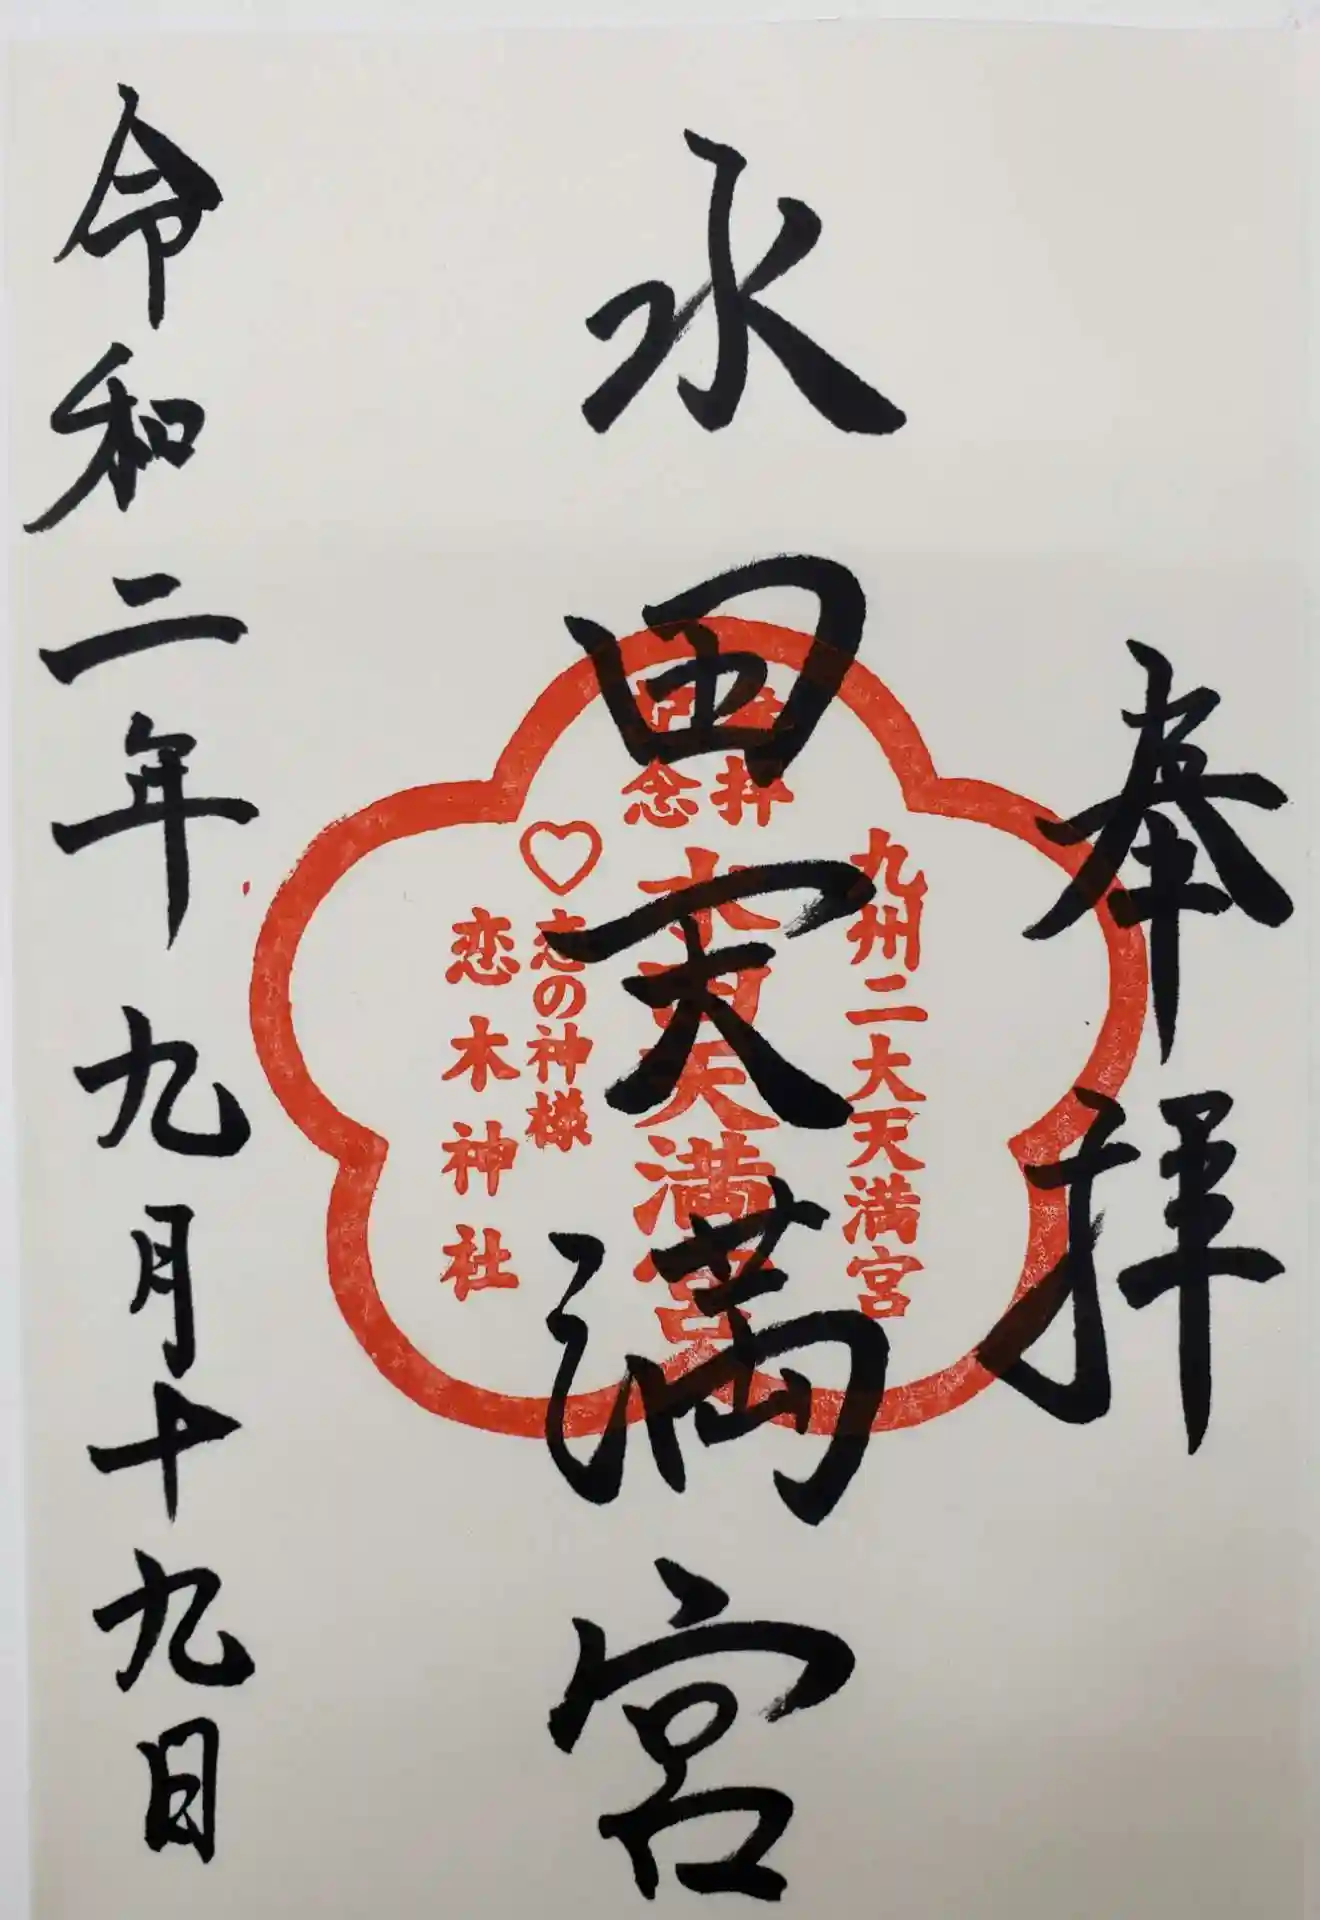 奉拝
水田天満宮
令和二年九月十九日
参拝
記念
九州二大天満宮
水田天満宮
♡恋の神様
恋木神社